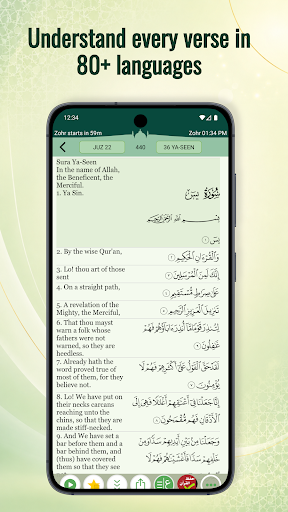 Understand every verse in
80+ languages
12:34
Zohr starts in 59m
Zohr 01:34 PM
JUZ 22
440
36 YA-SEEN
Sura Ya-Seen
In the name of Allah,
the Beneficent, the
Merciful.
1. Ya Sin.
سُورَةُ يسٓ
بِسْمِ اللَّهِ الرَّحْمَٰنِ الرَّحِيمِ
يسٓ ١
2. By the wise Qur'an,
وَالْقُرْآنِ الْحَكِيمِ ٢
3. Lo! thou art of those
sent
إِنَّكَ لَمِنَ الْمُرْسَلِينَ ٣
4. On a straight path,
عَلَىٰ صِرَاطٍ مُّسْتَقِيمٍ ٤
5. A revelation of the
Mighty, the Merciful,
تَنزِيلَ الْعَزِيزِ الرَّحِيمِ ٥
6. That thou mayst
warn a folk whose
fathers were not
warned, so they are
heedless.
لِتُنذِرَ قَوْمًا مَّا أُنذِرَ آبَاؤُهُمْ فَهُمْ
غَافِلُونَ ٦
7. Already hath the
word proved true of
most of them, for they
believe not.
لَقَدْ حَقَّ الْقَوْلُ عَلَىٰ أَكْثَرِهِمْ فَهُمْ لَا
يُؤْمِنُونَ ٧
8. Lo! We have put on
their necks carcans
reaching unto the
chins, so that they are
made stiff-necked.
إِنَّا جَعَلْنَا فِي أَعْنَاقِهِمْ أَغْلَالًا فَهِيَ إِلَى
الْأَذْقَانِ فَهُم مُّقْمَحُونَ ٨
9. And We have set a
bar before them and a
bar behind them, and
(thus) have covered
them so that they see
وَجَعَلْنَا مِن بَيْنِ أَيْدِيهِمْ سَدًّا وَمِنْ
خَلْفِهِمْ سَدًّا فَأَغْشَيْنَاهُمْ فَهُمْ لَا